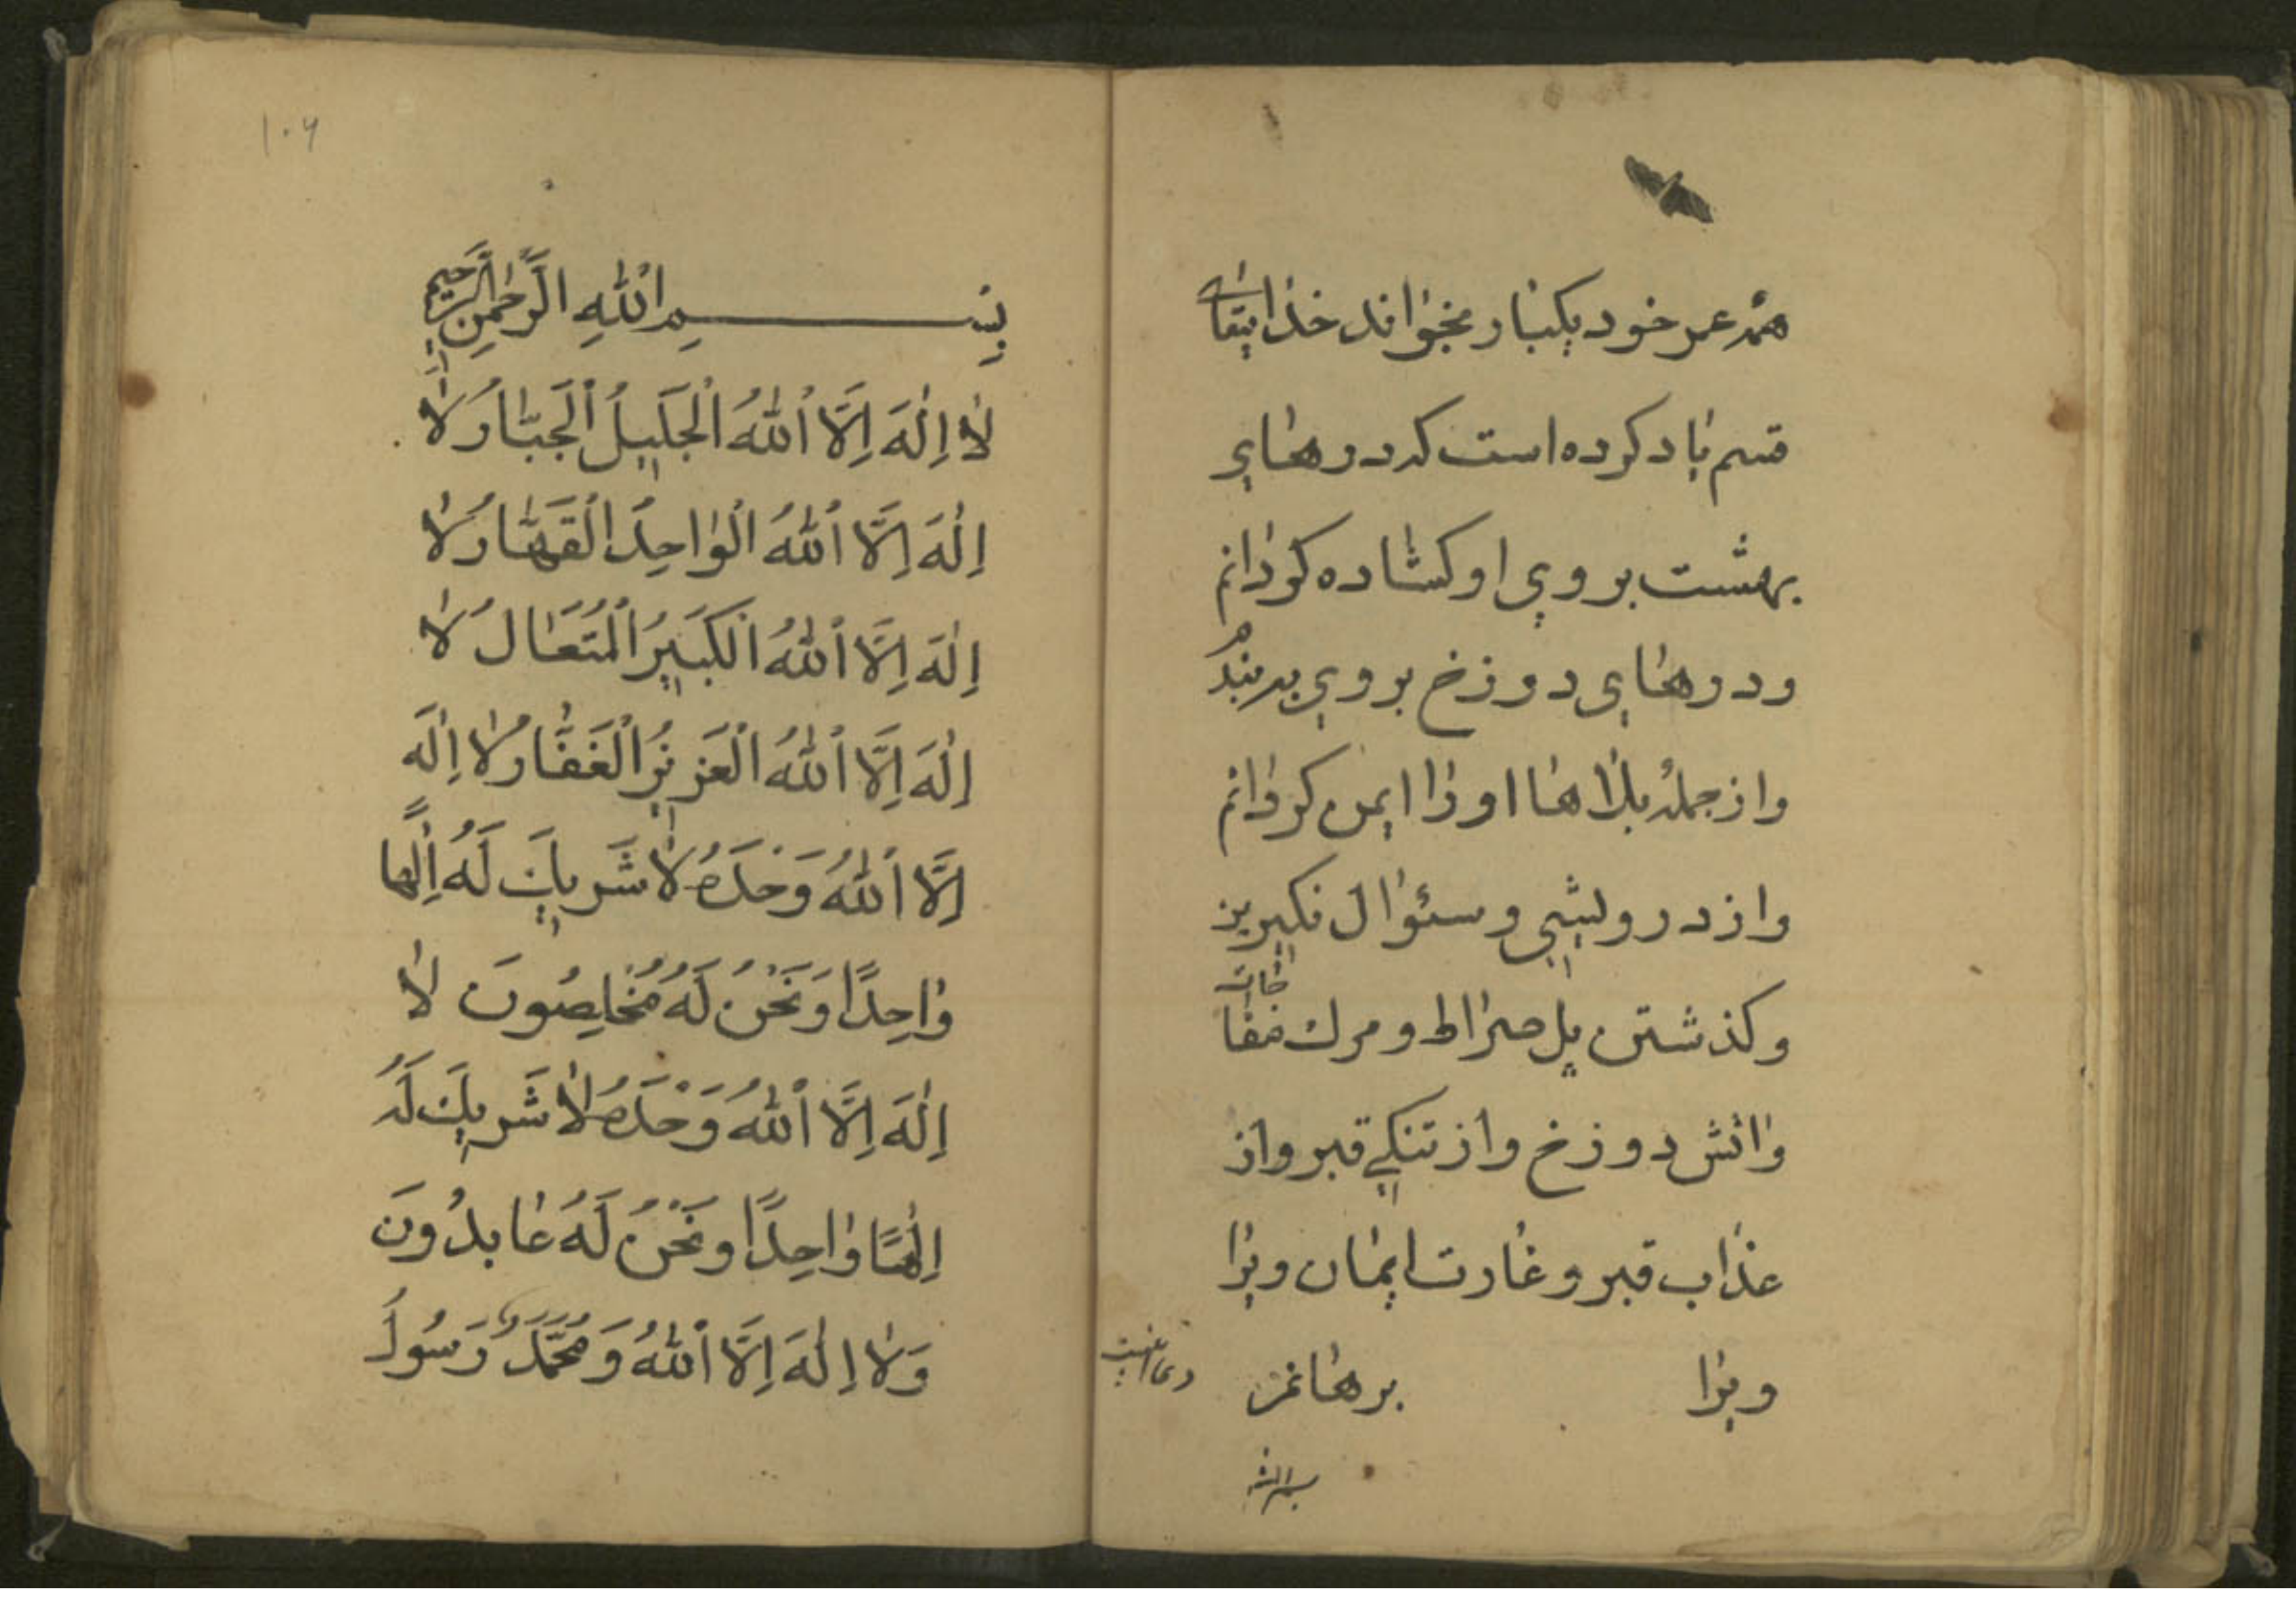 همه عمر خود یکبار بخواند خدایتعالی
قسم یاد کرده است که درهای
بهشت بروی او کشاده کردانم
و درهای دوزخ بروی به بندم
و از جمله بلاها او را ایمن کردانم
و از درویشی و سئوال نکیرین
و کذشتن پل صراط و مرك مفاجات
و اتش دوزخ و از تنکی قبر و از
عذاب قبر و غارت ایمان ویرا
ویرا برهانم
دعا اینست
بسم الله
۱۰۶
بِسْمِ اللّٰهِ الرَّحْمٰنِ الرَّحِيمِ
لٰا اِلٰهَ اِلَّا اللّٰهُ الْجَلِيلُ الْجَبّٰارُ لٰا
اِلٰهَ اِلَّا اللّٰهُ الْوٰاحِدُ الْقَهّٰارُ لٰا
اِلٰهَ اِلَّا اللّٰهُ الْكَبِيرُ الْمُتَعٰالُ لٰا
اِلٰهَ اِلَّا اللّٰهُ الْعَزِيزُ الْغَفّٰارُ لٰا اِلٰهَ
اِلَّا اللّٰهُ وَحْدَهُ لٰا شَرِيكَ لَهُ اِلٰهًا
وٰاحِدًا وَنَحْنُ لَهُ مُخْلِصُونَ لٰا
اِلٰهَ اِلَّا اللّٰهُ وَحْدَهُ لٰا شَرِيكَ لَهُ
اِلٰهًا وٰاحِدًا وَنَحْنُ لَهُ عٰابِدُونَ
وَلٰا اِلٰهَ اِلَّا اللّٰهُ وَمُحَمَّدٌ رَسُولُ